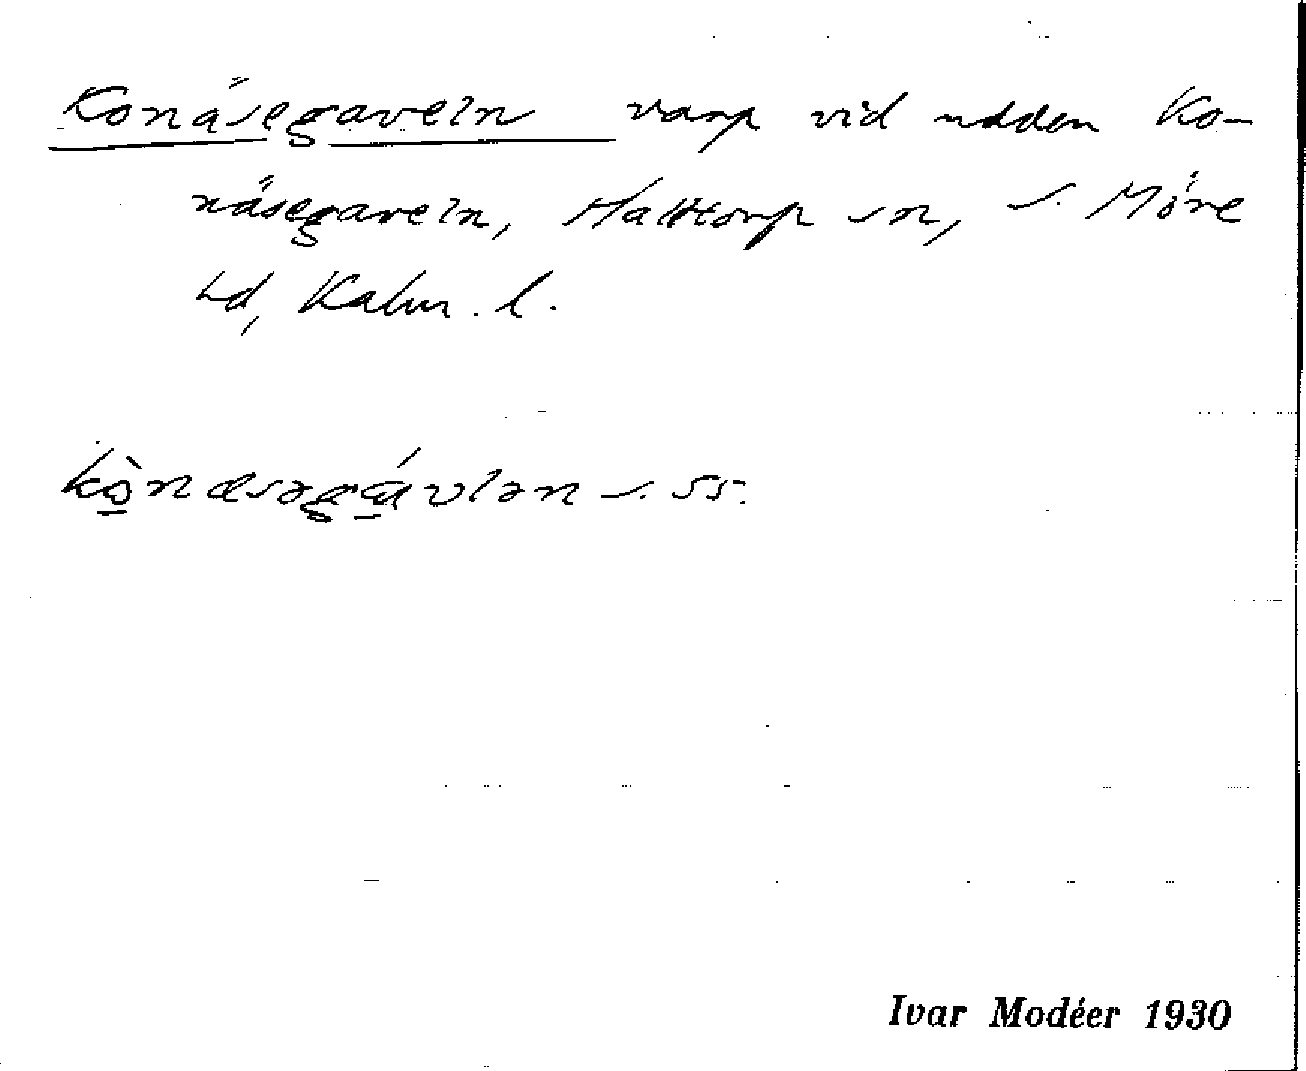 Konäsegaveln varp vid udden Ko-
näsegaveln, Halltorp sn, S. Möre
hd, Kalm. l.
kò̱næsəgá̱vlən s. 55.
Ivar Modéer 1930